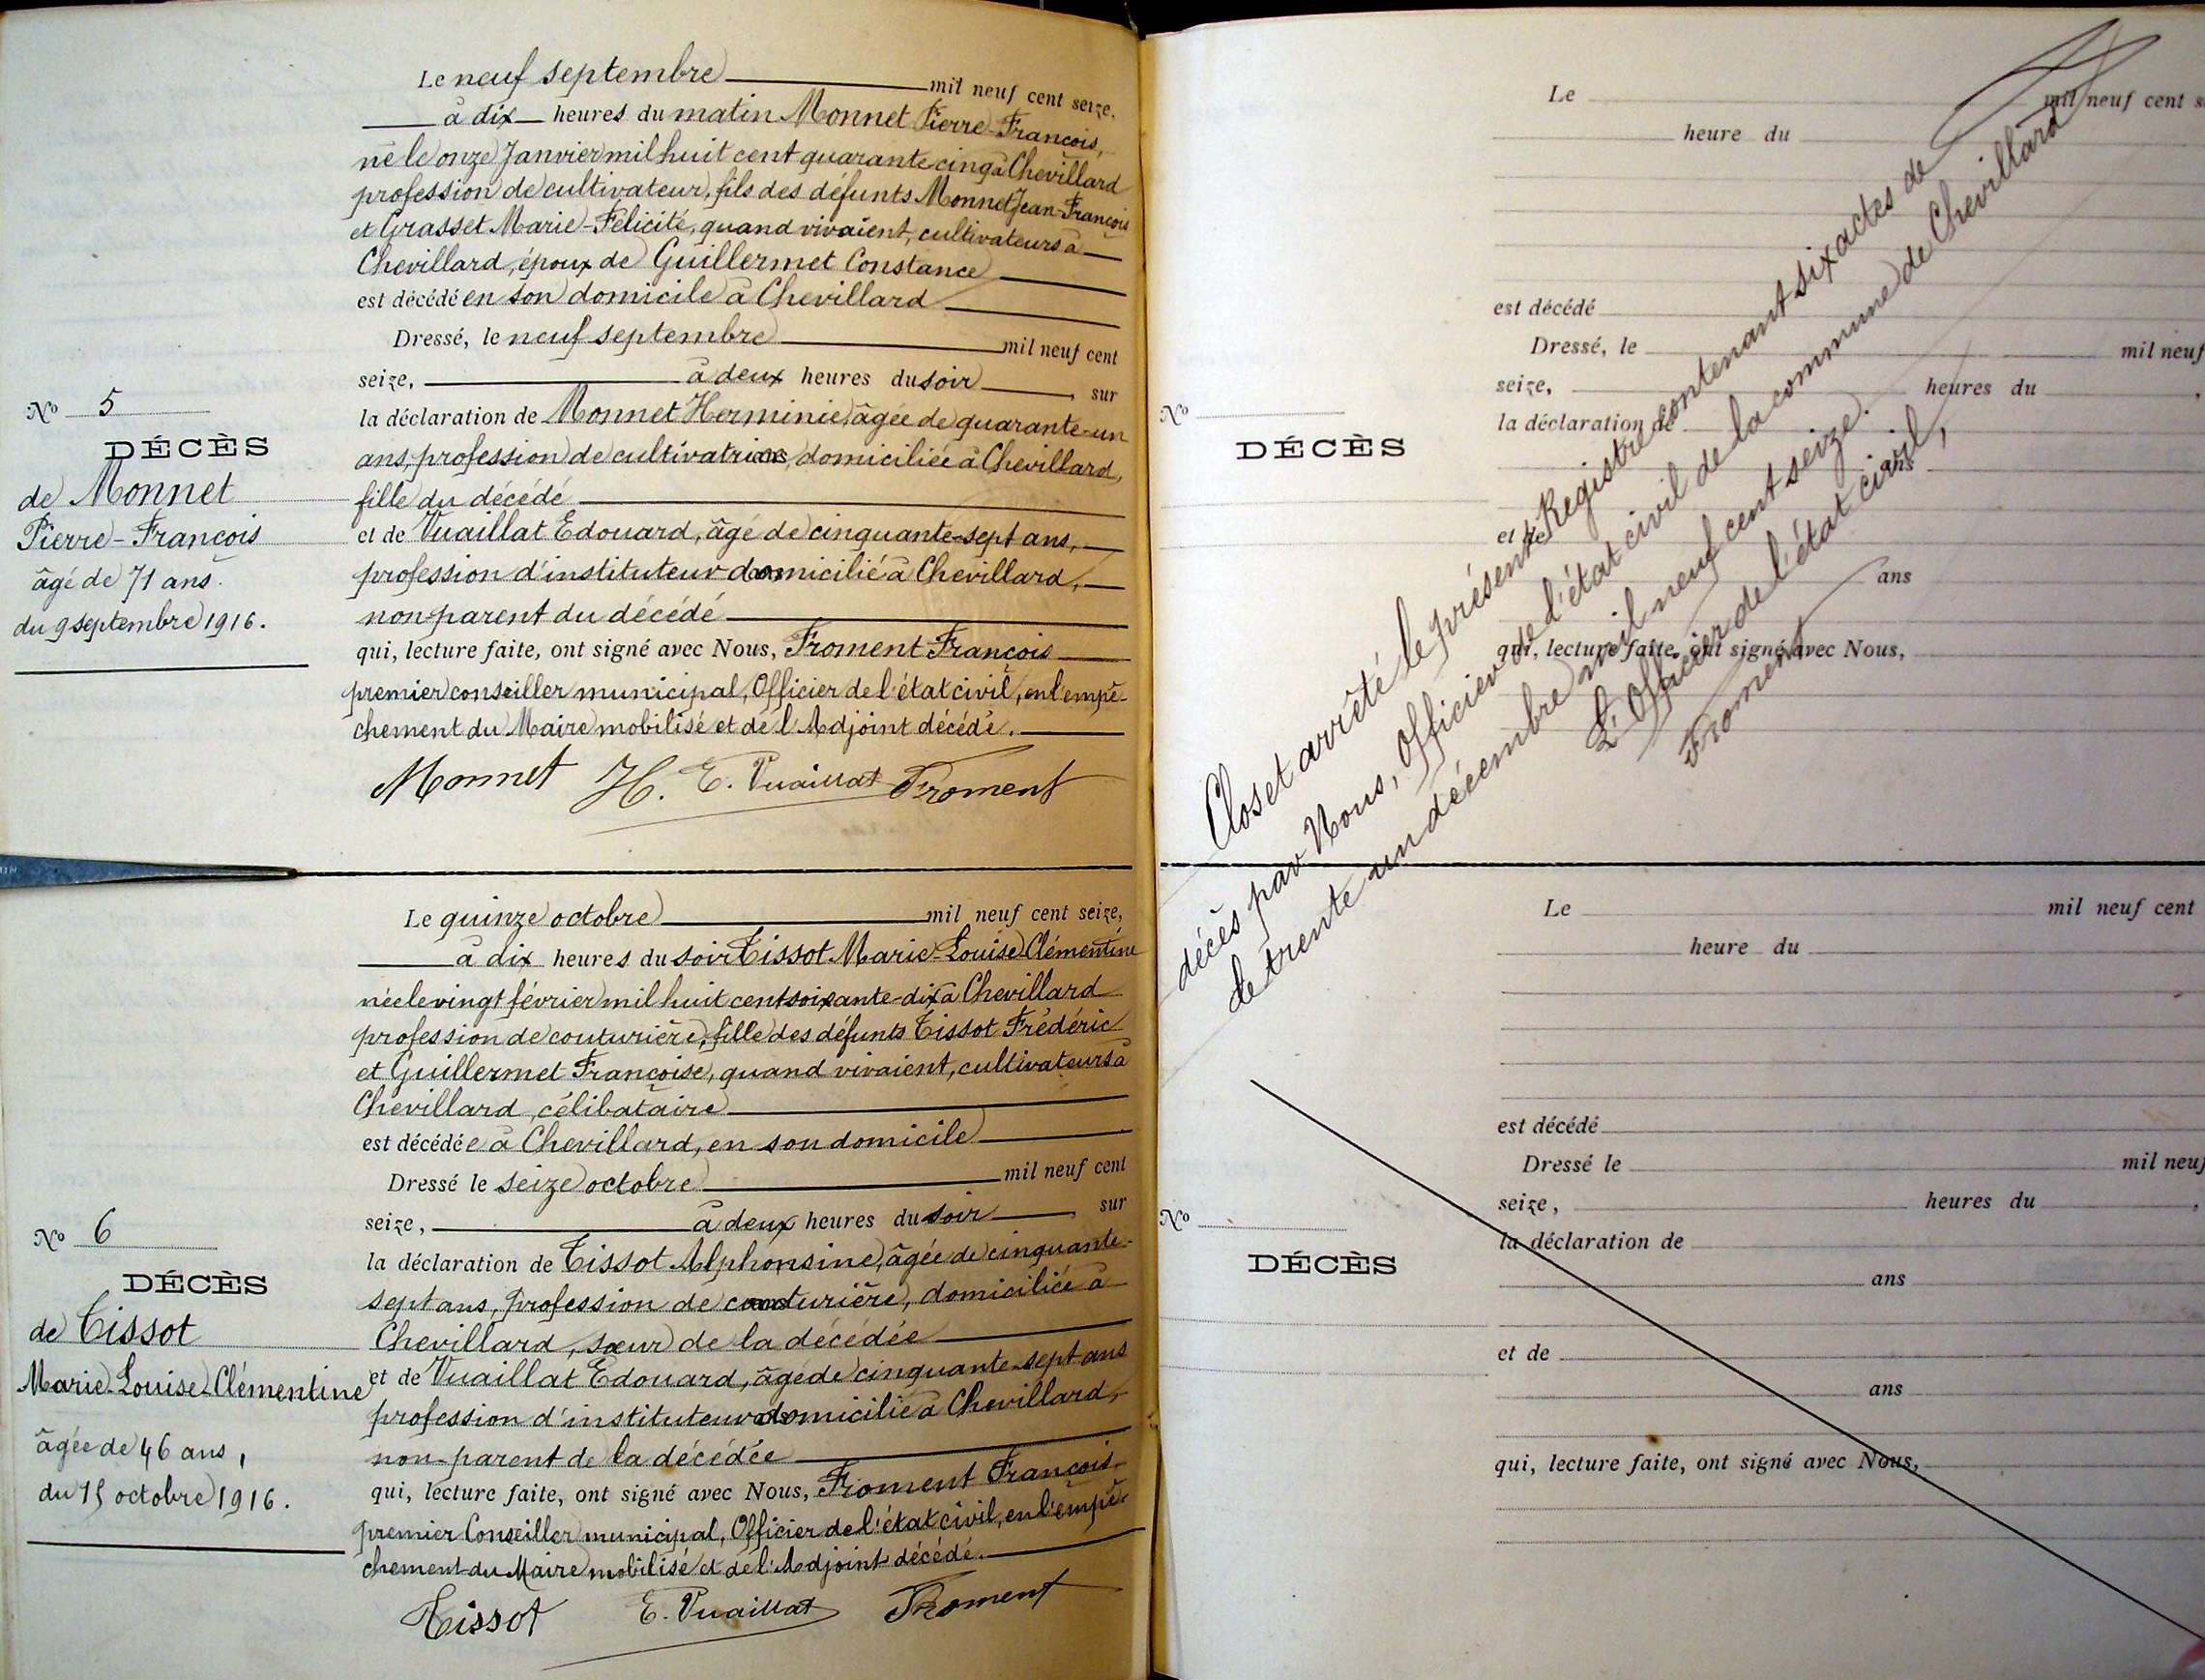 Le neuf septembre mil neuf cent seize,
à dix heures du matin Monnet Pierre-François,
né le onze Janvier mil huit cent quarante cinq à Chevillard
profession de cultivateur, fils des défunts Monnet Jean-François
et Grasset Marie-Félicité, quand vivaient, cultivateurs à
Chevillard, époux de Guillermet Constance
est décédé en son domicile à Chevillard
Dressé, le neuf septembre mil neuf cent
seize, à deux heures du soir, sur
la déclaration de Monnet Herminie, âgée de quarante-un
ans, profession de cultivatrice, domiciliée à Chevillard,
fille du décédé
et de Vuaillat Edouard, âgé de cinquante-sept ans,
profession d'instituteur domicilié à Chevillard,
non-parent du décédé
qui, lecture faite, ont signé avec Nous, Froment François
premier conseiller municipal, Officier de l'état civil, en l'empê-
chement du Maire mobilisé et de l'Adjoint décédé.
Monnet H. E. Vuaillat Froment
No 5
DÉCÈS
de Monnet
Pierre-François
âgé de 71 ans.
du 9 septembre 1916.
Le quinze octobre mil neuf cent seize,
à dix heures du soir Tissot Marie-Louise Clémentine
née le vingt février mil huit cent soixante-dix à Chevillard
profession de couturière, fille des défunts Tissot Frédéric
et Guillermet Françoise, quand vivaient, cultivateurs à
Chevillard, célibataire
est décédée à Chevillard, en son domicile
Dressé le seize octobre mil neuf cent
seize, à deux heures du soir, sur
la déclaration de Tissot Alphonsine, âgée de cinquante-
sept ans, profession de couturière, domiciliée à
Chevillard, sœur de la décédée
et de Vuaillat Edouard, âgé de cinquante-sept ans
profession d'instituteur domicilié à Chevillard,
non-parent de la décédée
qui, lecture faite, ont signé avec Nous, Froment François
premier Conseiller municipal, Officier de l'état civil, en l'empê-
chement du Maire mobilisé et de l'Adjoint décédé.
Tissot E. Vuaillat Froment
No 6
DÉCÈS
de Tissot
Marie-Louise-Clémentine
âgée de 46 ans,
du 15 octobre 1916.
Le mil neuf cent s
heure du
est décédé
Dressé, le mil neuf
seize, heures du,
la déclaration de
ans
et de
ans
qui, lecture faite, ont signé avec Nous,
No
DÉCÈS
Clos et arrêté le présent Registre contenant six actes de
décès par Nous, Officier de l'état civil de la commune de Chevillard
le trente un décembre mil neuf cent seize.
L'Officier de l'état civil,
Froment
Le mil neuf cent
heure du
est décédé
Dressé le mil neuf
seize, heures du,
la déclaration de
ans
et de
ans
qui, lecture faite, ont signé avec Nous,
No
DÉCÈS